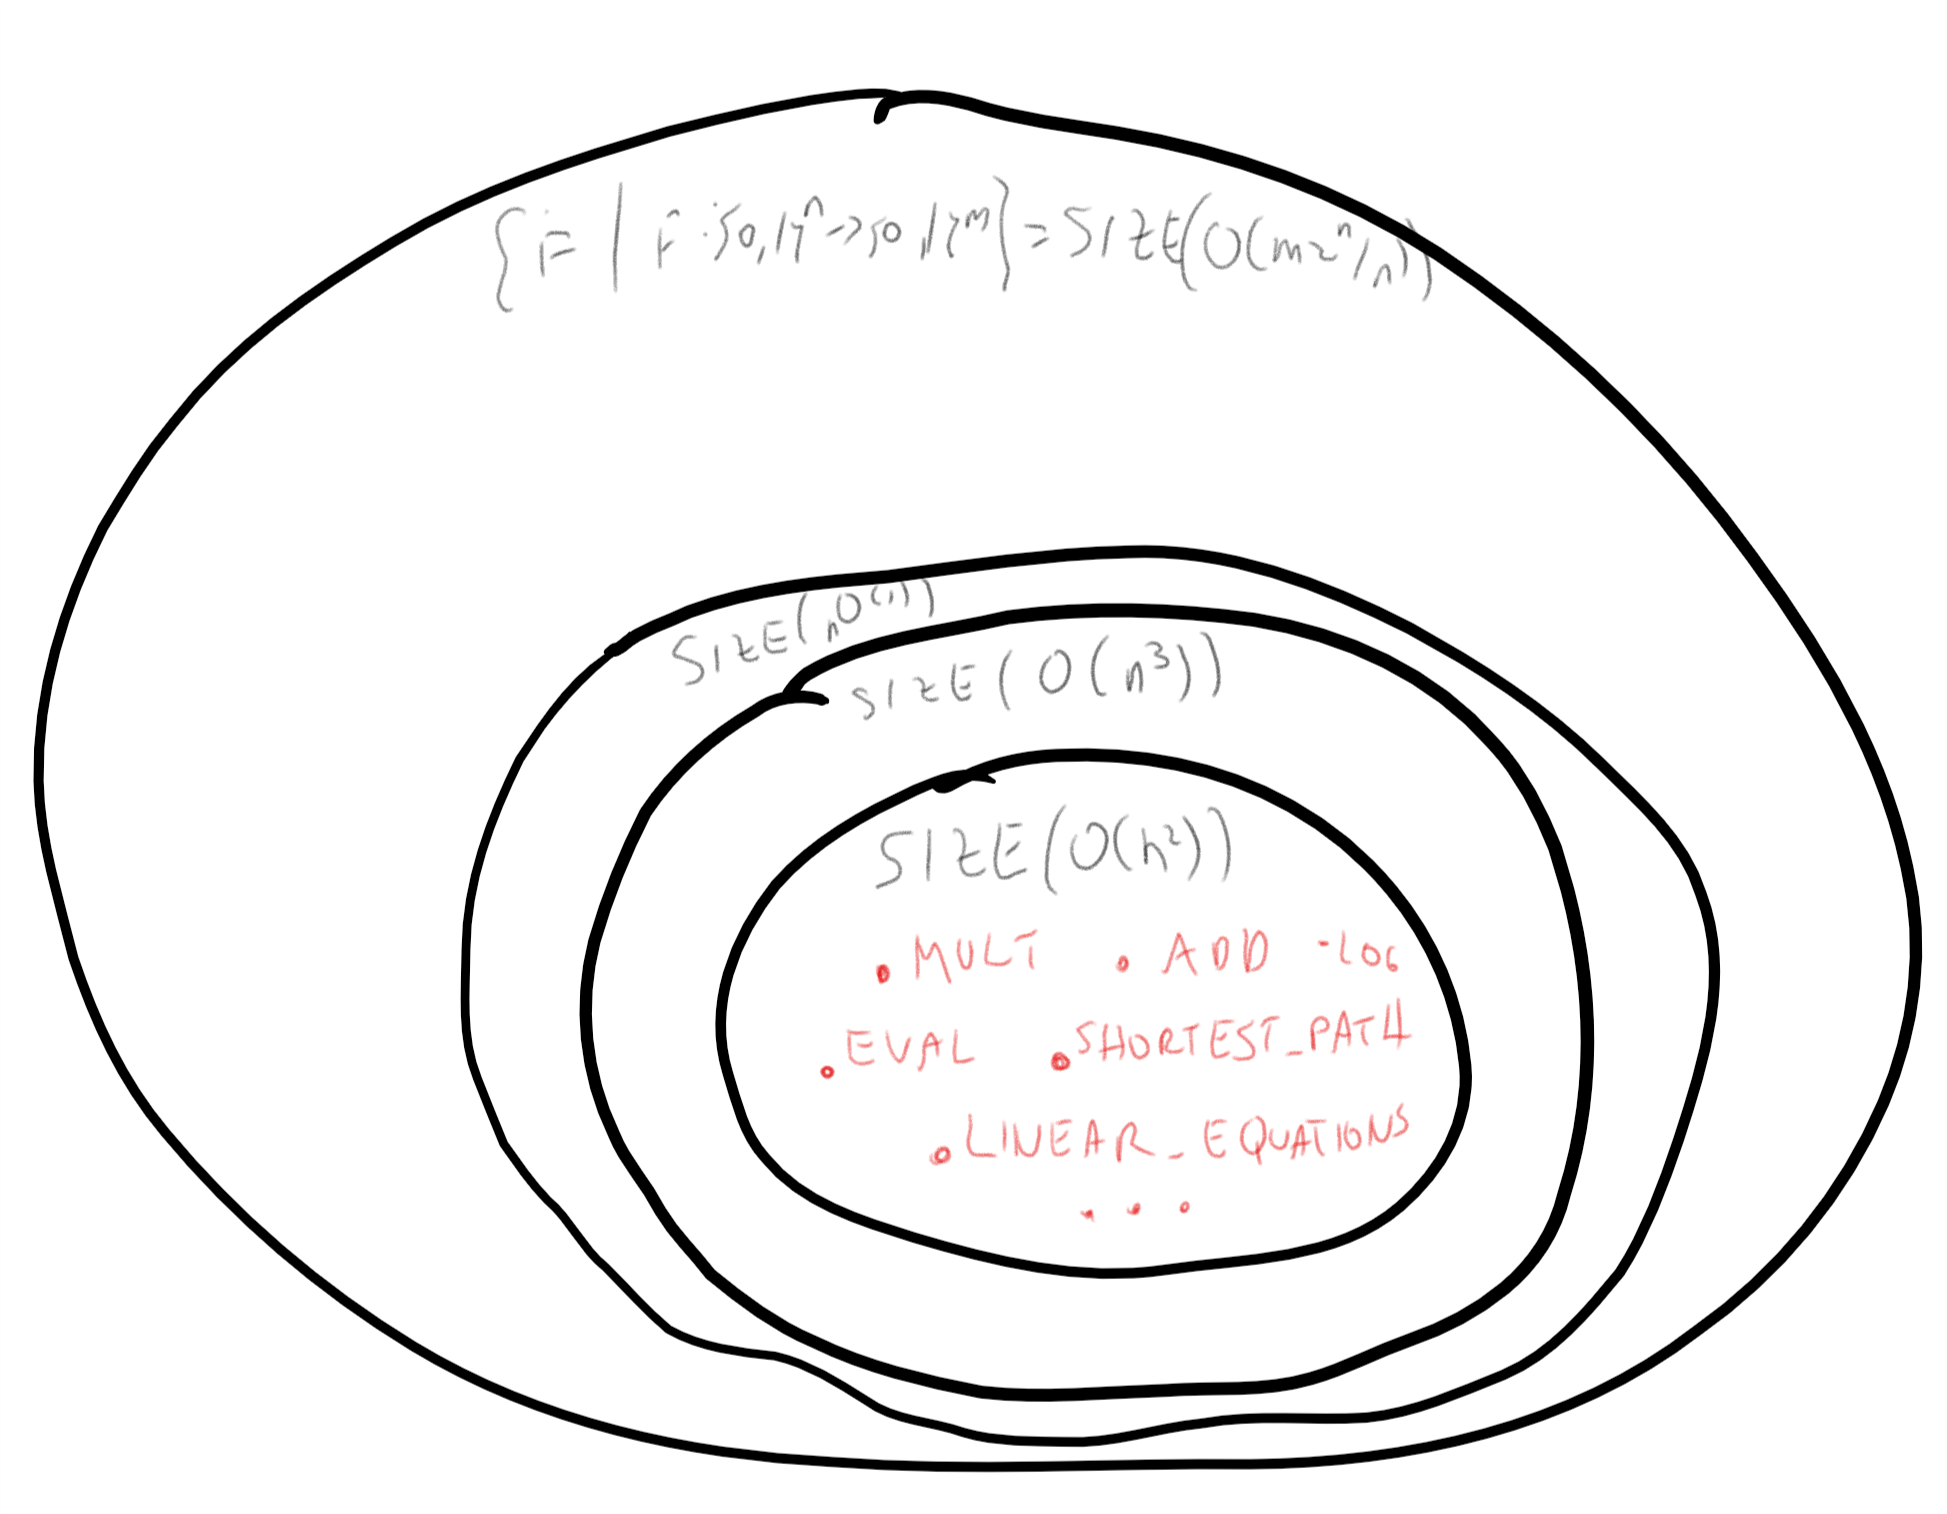 {F | F:{0,1}ⁿ->{0,1}ᵐ} = SIZE(O(m2ⁿ/n))
SIZE(n^O(1))
SIZE(O(n³))
SIZE(O(n²))
• MULT • ADD • LOG
• EVAL • SHORTEST_PATH
• LINEAR_EQUATIONS
...